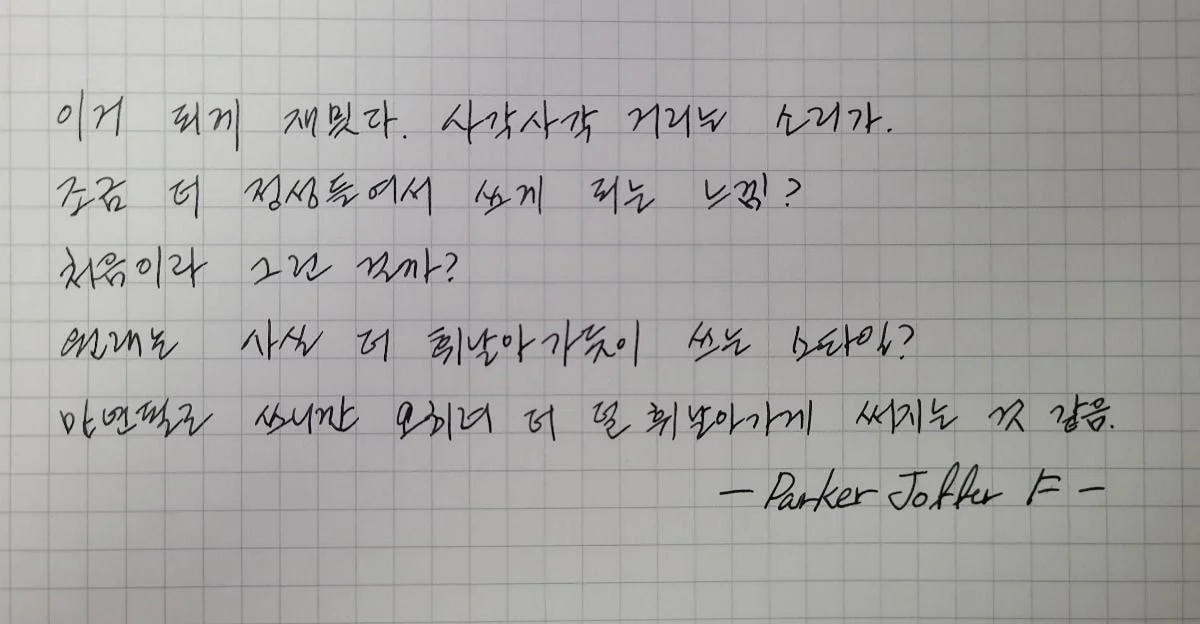 이거 되게 재밌다. 사각사각 거리는 소리가.
조금 더 정성들여서 쓰게 되는 느낌?
처음이라 그런 것까?
원래는 사실 더 휘날아가듯이 쓰는 스타일?
만연필로 쓰니깐 오히려 더 덜 휘날아가게 써지는 것 같음.
– Parker Jotter F –